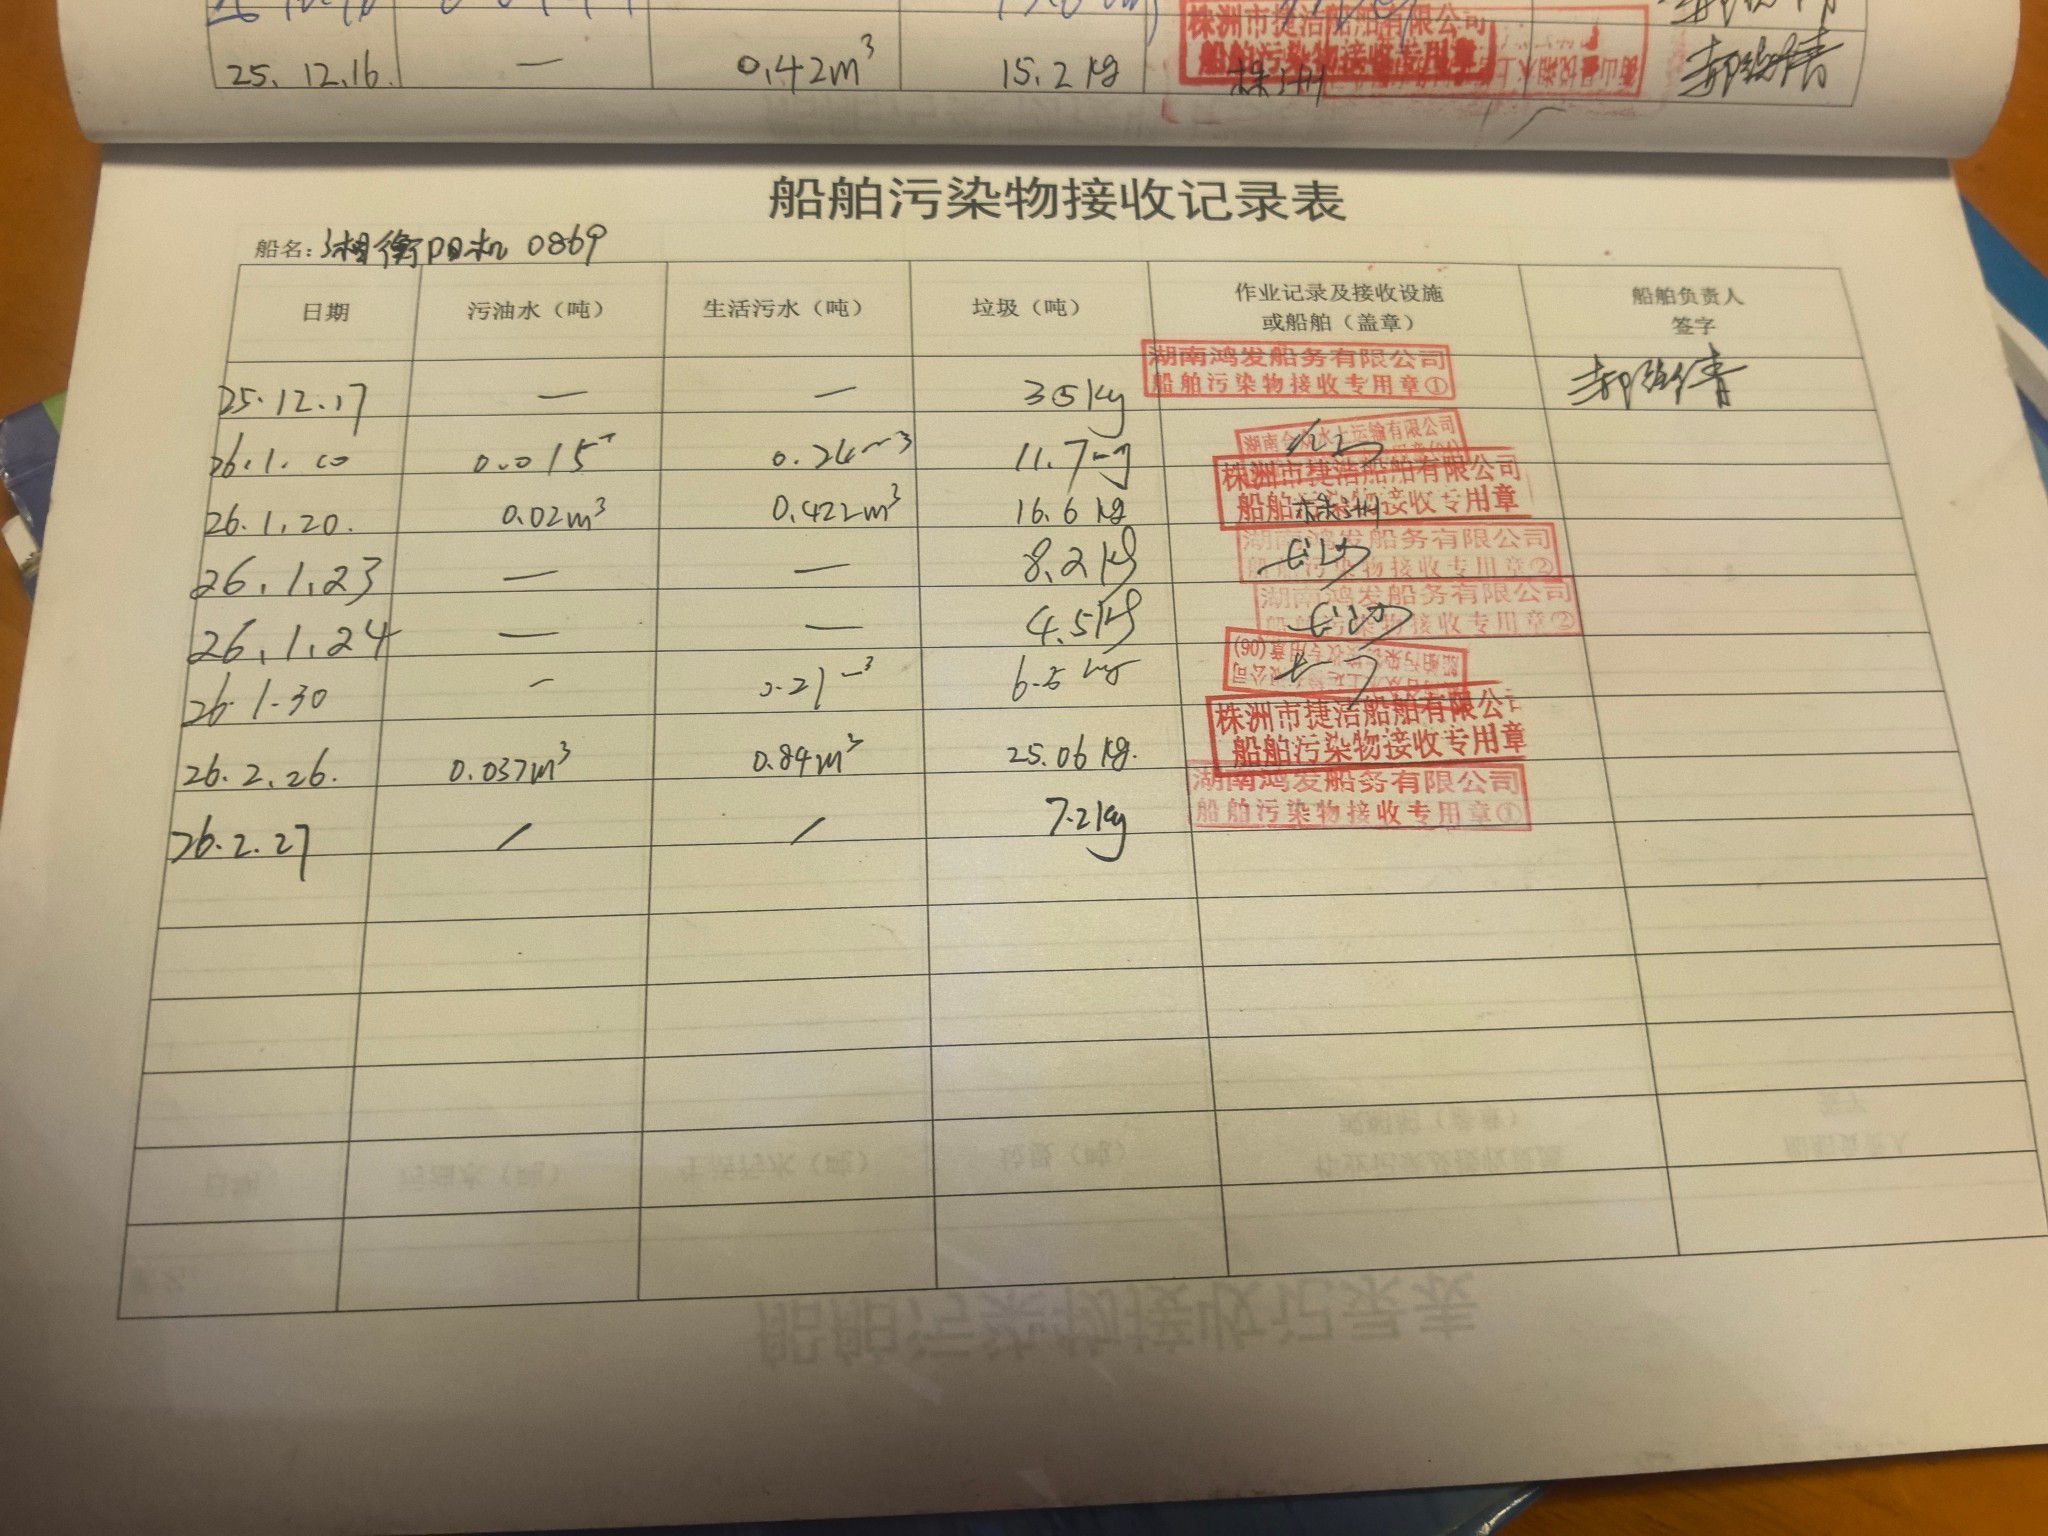 25.12.16. — 0.42m³ 15.2kg 株洲
株洲市捷洁船舶有限公司
船舶污染物接收专用章
船舶污染物接收记录表
船名: 湘衡阳机 0869
日期 污油水（吨） 生活污水（吨） 垃圾（吨） 作业记录及接收设施 船舶负责人
或船舶（盖章） 签字
湖南鸿发船务有限公司
船舶污染物接收专用章①
25.12.17 — —
湖南合众水上运输有限公司
26.1.20 0.015ᵀ 11.7kg
株洲市捷洁船舶有限公司
船舶污染物接收专用章
26.1.20. 0.02m³ 0.422m³ 16.6kg 株洲
湖南鸿发船务有限公司
船舶污染物接收专用章②
26.1.23 — — 8.2kg 长沙
湖南鸿发船务有限公司
船舶污染物接收专用章②
26.1.24 — — 4.5kg 长沙
26.1.30 — 0.21m³ 6.5kg
株洲市捷洁船舶有限公司
船舶污染物接收专用章
26.2.26. 0.037m³ 0.84m³ 25.06kg.
湖南鸿发船务有限公司
船舶污染物接收专用章①
26.2.27 / / 7.2kg